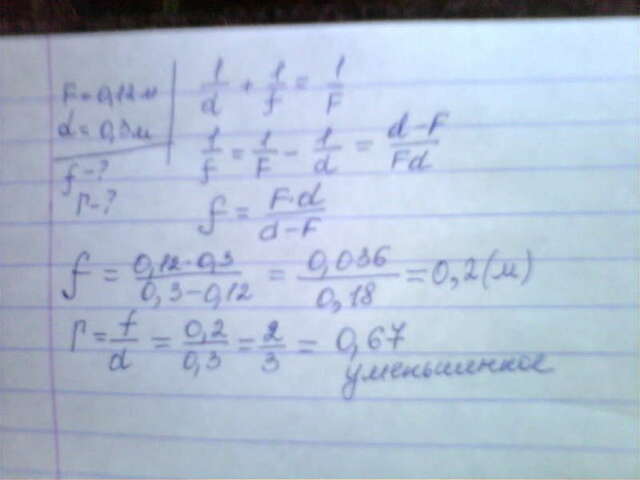 F = 0,12 м
d = 0,3 м
f - ?
Г - ?
1/d + 1/f = 1/F
1/f = 1/F - 1/d = d-F/Fd
f = F·d/d-F
f = 0,12·0,3/0,3-0,12 = 0,036/0,18 = 0,2 (м)
Г = f/d = 0,2/0,3 = 2/3 = 0,67
уменьшенное